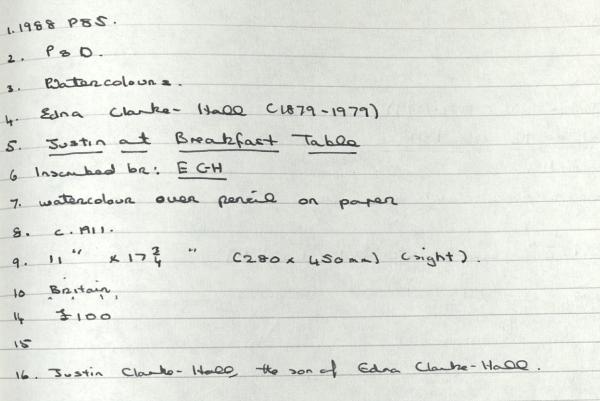 1. 1988 P&S.
2. P & D.
3. Watercolours.
4. Edna Clarke-Hall (1879-1979)
5. Justin at Breakfast Table
6 Inscribed br: EGH
7. watercolour over pencil on paper
8. c. 1911.
9. 11" x 17 3/4 " (280 x 450mm) (sight).
10 Britain
14 £100
15
16. Justin Clarke-Hall, the son of Edna Clarke-Hall.